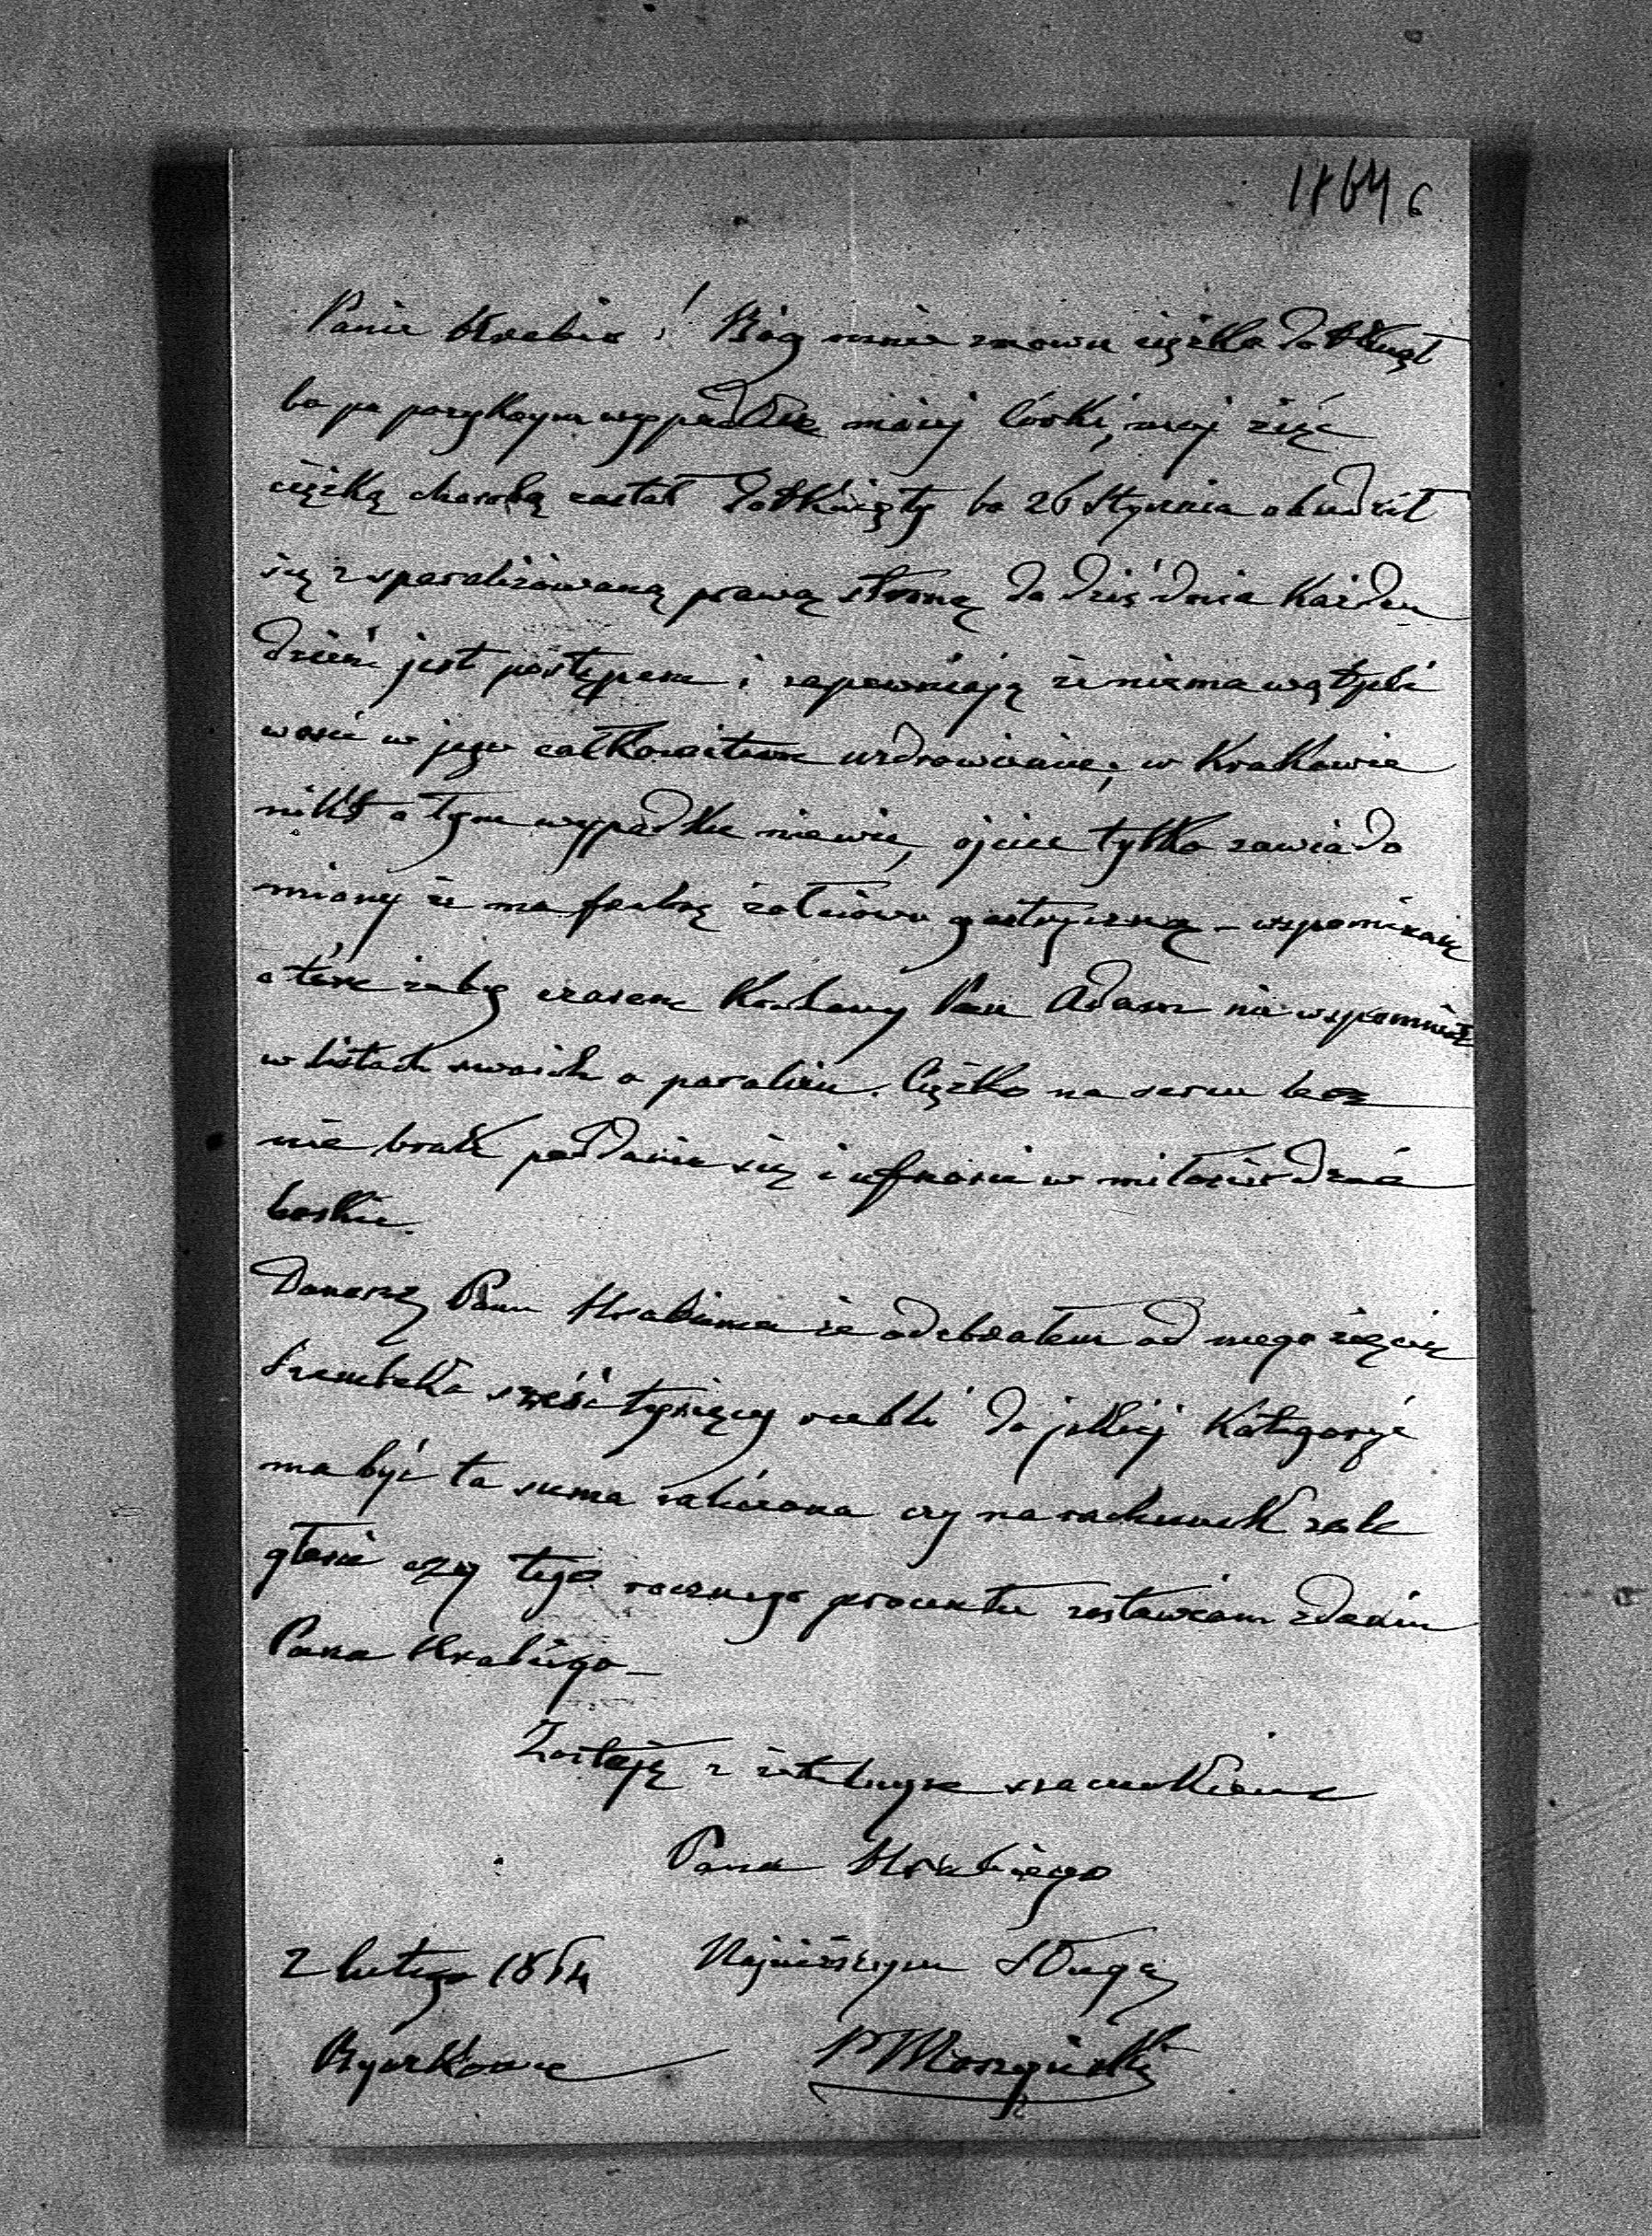 1864 6
Panie Hrabio! Bóg mnie znowu ciężko dotknął
bo po przykrym wypadku mojej Córki, mój zięć
ciężką chorobą został dotknięty bo 26 Stycznia obudził
się z sparaliżowaną prawą stroną do dziś dnia każden
dzień jest postępem i zapewniają że niema wątpli
wości w jego całkowitem uzdrowieniu, w Krakowie
nikt o tym wypadku niewie, ojciec tylko zawiado
miony że ma febrę żołciowo gastryczną – wspominam
o tém żeby czasem Kochany Pan Adam nie wspomniał
w listach swoich o paraliżu. Ciężko na sercu lecz
nie brak poddania się i ufności w miłosierdzie
boskie.
Donoszę Panu Hrabiemu że odebrałem od mego zięcia
Szembeka sześć tysięcy rubli do jakiej Kategoryi
ma być ta suma zaliczona czy na rachunek zale
głości czy tego rocznego procentu zostawiam zdaniu
Pana Hrabiego –
Zostaję z rzetelnym szacunkiem
Pana Hrabiego
2 lutego 1864 Najniższym Sługą
P Moszyński